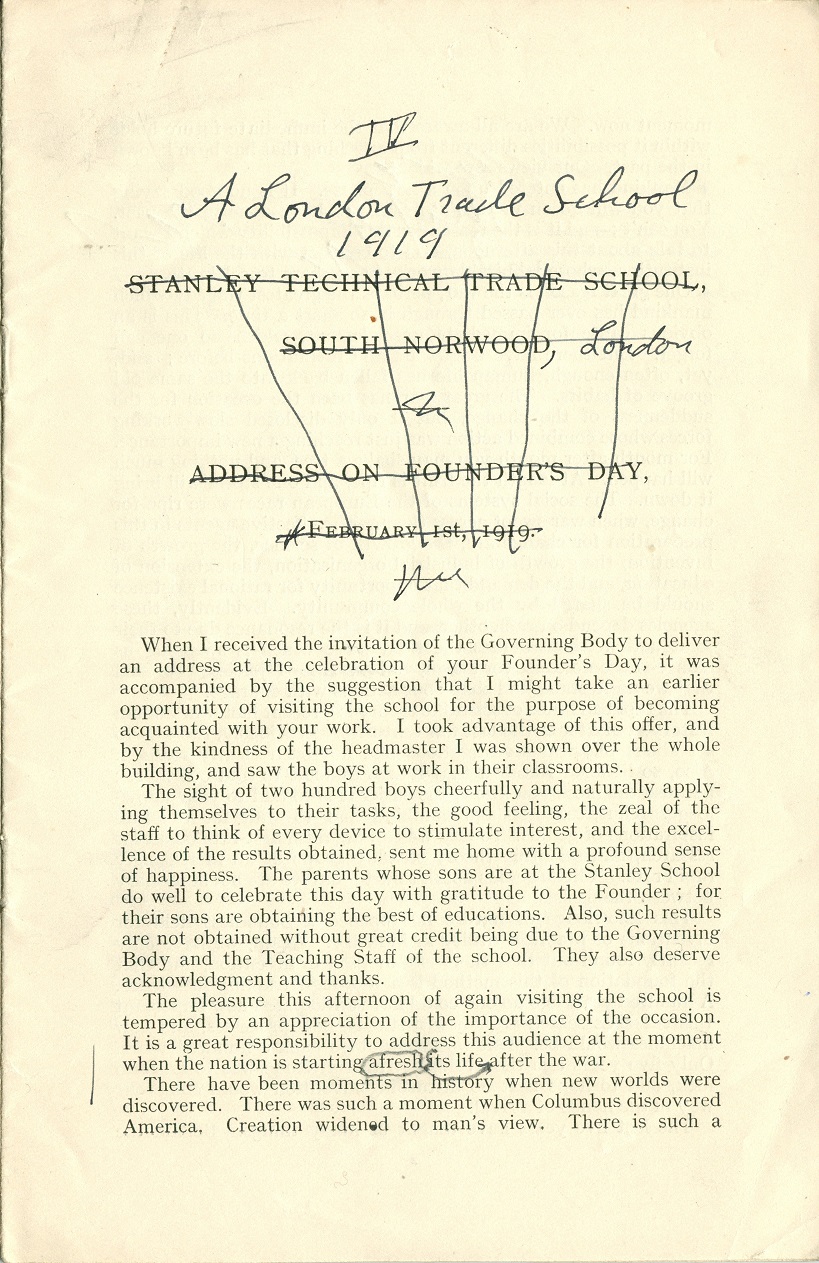 IV
A London Trade School
1919
STANLEY TECHNICAL TRADE SCHOOL,
SOUTH NORWOOD, London
ADDRESS ON FOUNDER'S DAY,
FEBRUARY 1st, 1919.
When I received the invitation of the Governing Body to deliver
an address at the celebration of your Founder's Day, it was
accompanied by the suggestion that I might take an earlier
opportunity of visiting the school for the purpose of becoming
acquainted with your work. I took advantage of this offer, and
by the kindness of the headmaster I was shown over the whole
building, and saw the boys at work in their classrooms.
The sight of two hundred boys cheerfully and naturally apply-
ing themselves to their tasks, the good feeling, the zeal of the
staff to think of every device to stimulate interest, and the excel-
lence of the results obtained, sent me home with a profound sense
of happiness. The parents whose sons are at the Stanley School
do well to celebrate this day with gratitude to the Founder ; for
their sons are obtaining the best of educations. Also, such results
are not obtained without great credit being due to the Governing
Body and the Teaching Staff of the school. They also deserve
acknowledgment and thanks.
The pleasure this afternoon of again visiting the school is
tempered by an appreciation of the importance of the occasion.
It is a great responsibility to address this audience at the moment
when the nation is starting afresh its life after the war.
There have been moments in history when new worlds were
discovered. There was such a moment when Columbus discovered
America. Creation widened to man's view. There is such a